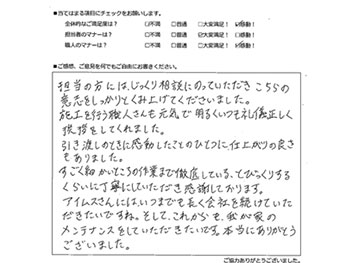 ■当てはまる項目にチェックをお願いします。
全体的なご満足度は？ □不満 □普通 □大変満足！ ☑感動！
担当者のマナーは？ □不満 □普通 ☑大変満足！ □感動！
職人のマナーは？ □不満 □普通 □大変満足！ ☑感動！
■ご感想、ご意見を何でもご自由にお書きください。
担当の方には、じっくり相談にのっていただき こちらの
意志をしっかりとくみ上げてくださいました。
施工を行う職人さんも 元気で 明るくいつも礼儀正しく
挨拶をしてくれました。
引き渡しのときに感動したことのひとつに仕上がりの良さ
もありました。
すごく細かいところの作業まで徹底している、とびっくりする
くらいに丁寧にしていただき感謝しております。
アイムスさんには、いつまでも長く会社を続けていた
だきたいですね。そして、これからも、我が家の
メンテナンスをしていただきたいです。本当にありがとう
ございました。
ご協力ありがとうございました。